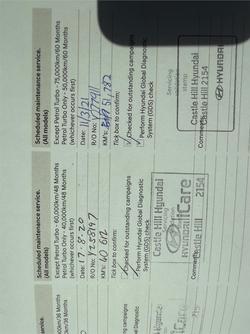 Scheduled maintenance service.
(All models)
Except Petrol Turbo - 60,000km/48 Months
Petrol Turbo Only - 40,000km/48 Months
(whichever occurs first)
Date: 17-8-20
R/O No:
KM's: 40 612
Tick box to confirm:
Checked for outstanding campaigns
Perform Hyundai Global Diagnostic
System (GDS) check
Castle Hill Hyundai
HYUNDAI iCare
Castle Hill 2154
Scheduled maintenance service.
(All models)
Except Petrol Turbo - 75,000km/60 Months
Petrol Turbo Only - 50,000km/60 Months
(whichever occurs first)
Date: 11/3/21
R/O No:
KM's: 51,782
Tick box to confirm:
Checked for outstanding campaigns
Perform Hyundai Global Diagnostic
System (GDS) check
Servicing
stamp
Castle Hill Hyundai
Castle Hill 2154
HYUNDAI